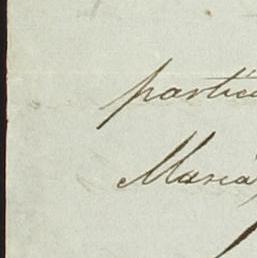 partic
Maria,